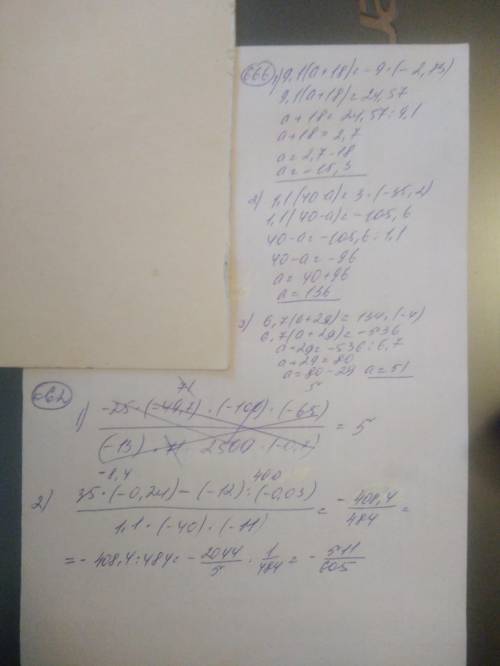 666
1) 9,1(a+18)=-9·(-2,73)
9,1(a+18)=24,57
a+18=24,57:9,1
a+18=2,7
a=2,7-18
a=-15,3
2) 1,1(40-a)=3·(-35,2)
1,1(40-a)=-105,6
40-a=-105,6:1,1
40-a=-96
a=40+96
a=136
3) 6,7(a+29)=134·(-4)
6,7(a+29)=-536
a+29=-536:6,7
a+29=80
a=80-29 a=51
71
1) -25·(-49,7)·(-100)·(-65)
(-13)·71·2500·(-0,7)
= 5
-8,4 400
2) 35·(-0,24)-(-12):(-0,03)
1,1·(-40)·(-11)
= -408,4/484 =
= -408,4:484= -2044/5 · 1/484 = -511/605